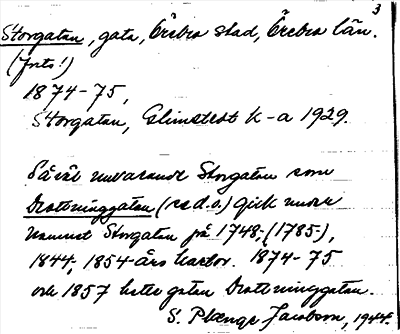 3
Storgatan, gata, Örebro stad, Örebro län.
(forts!)
1874-75,
Storgatan, Elmstedt K-a 1929.
Såväl nuvarande Storgatan som
Drottninggatan (se d.o.) gick under
namnet Storgatan på 1748, (1785-),
1844, 1854-års kartor. 1874-75
och 1857 hette gatan Drottninggatan.
S. Plænge Jacobson, 1944.